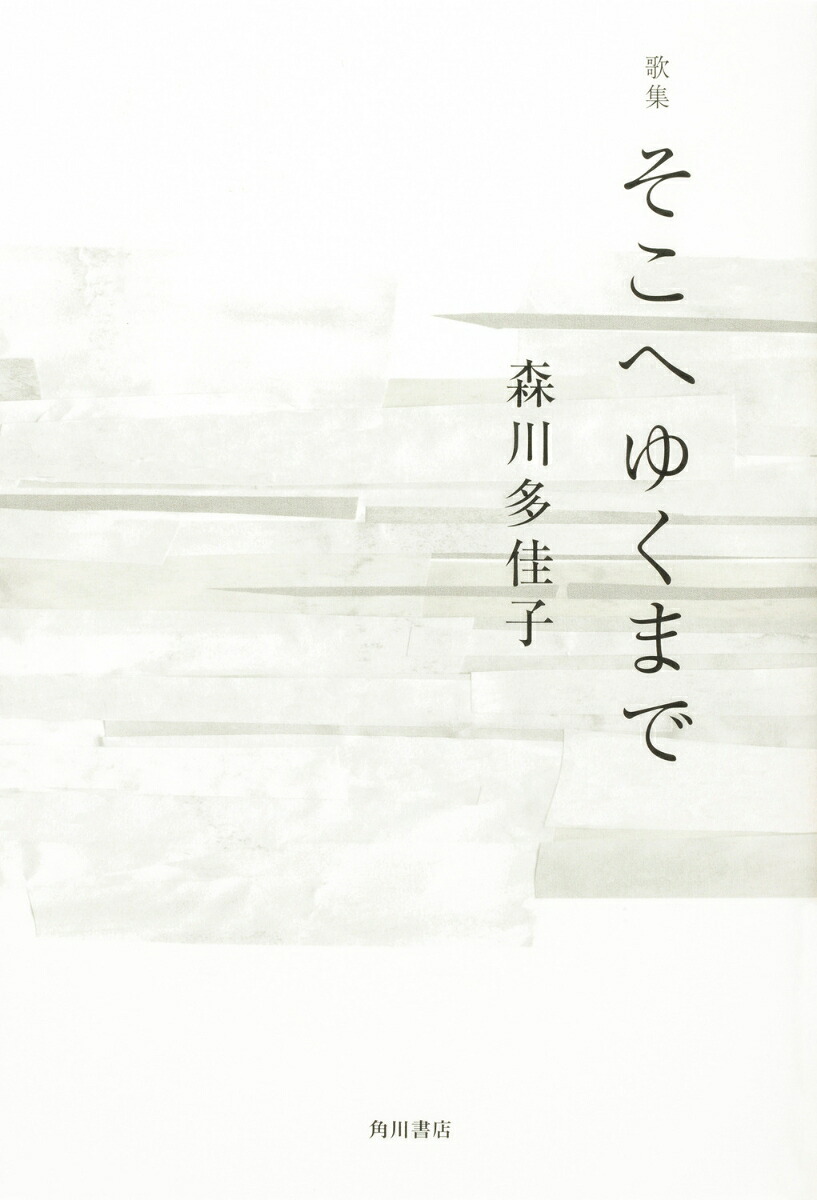 歌集 そこへゆくまで
森川多佳子
角川書店